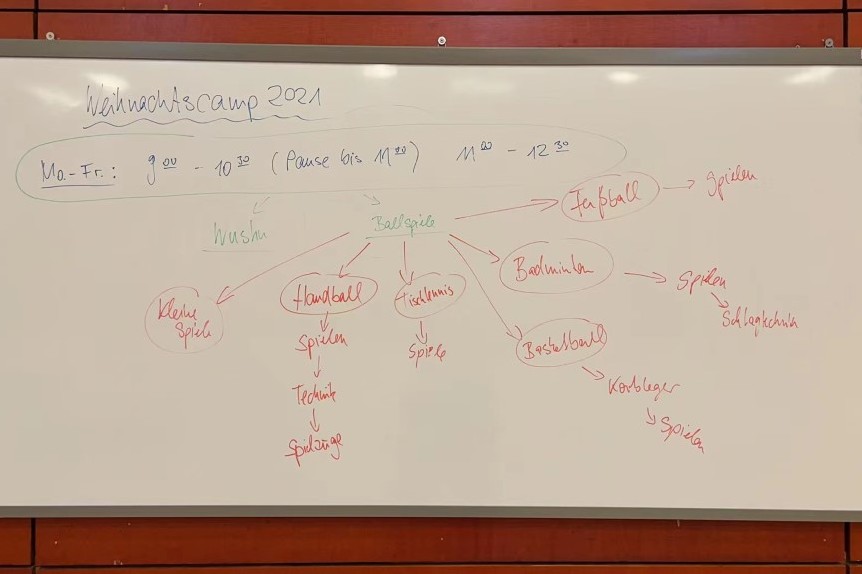 Weihnachtscamp 2021
Mo.-Fr.: 9 00 - 10 30 (Pause bis 11 00) 11 00 - 12 30
Wushu
Ballspiele
Fußball
Spielen
Badminton
Spielen
Schlagtechnik
Kleine
Spiele
Handball
Spielen
Technik
Spielzüge
Tischtennis
Spiele
Basketball
Korbleger
Spielen